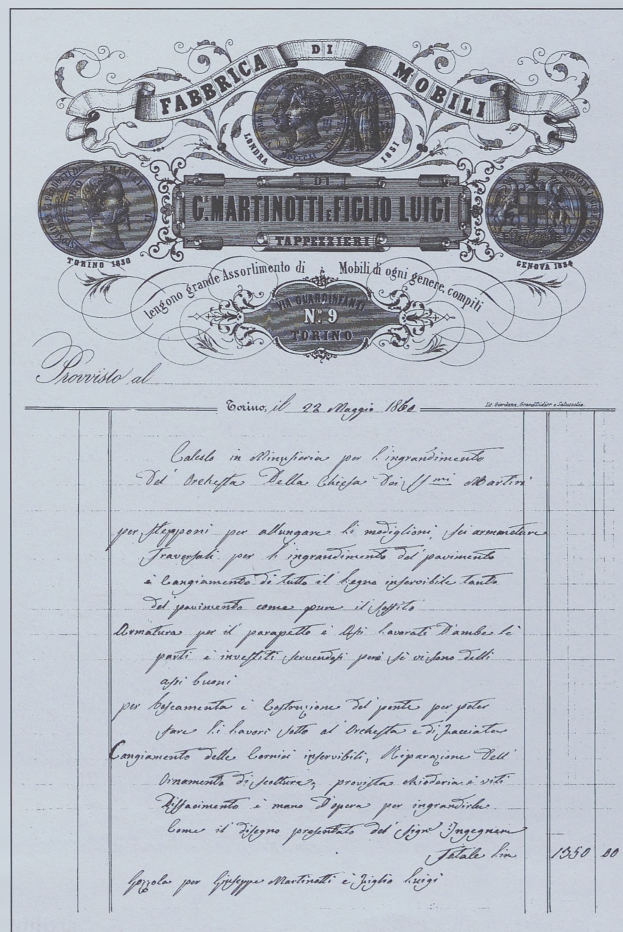 FABBRICA DI MOBILI
LONDRA 1851
DI
G. MARTINOTTI E FIGLIO LUIGI
TAPPEZZIERI
TORINO 1850
GENOVA 1854
tengono grande Assortimento di Mobili di ogni genere, compiti
VIA GUARDINFANTI
N.º 9
TORINO
Provvisto al
Torino, il 22 Maggio 1860
Calcolo in Minuseria per l'ingrandimento
Del' Orchesta Della Chiesa Dei SS mi Martiri
per Stepponi per allungare li modiglioni, sei armmature
Traversali per l'ingrandimento del pavimento
è Cangiamento di tutto il Legno inservibile tanto
del pavimento come pure il soffito
Armatura per il parapetto è Assi Lavorati D'ambe le
parti è investiti servendosi però se vi sono delli
assi buoni
per è Costruzione del ponte per poter
fare li Lavori sotto al Orchesta è di facciata
Cangiamento delle Cornici inservibili, Riparazione Dell'
Ornamento di scoltura, provista chioderia è viti
Disfacimento è mano D'opera per ingrandirla
Come il disegno presentato del Sign. Ingegnere
Totale Lire 1350 00
per Giuseppe Martinotti è figlio Luigi